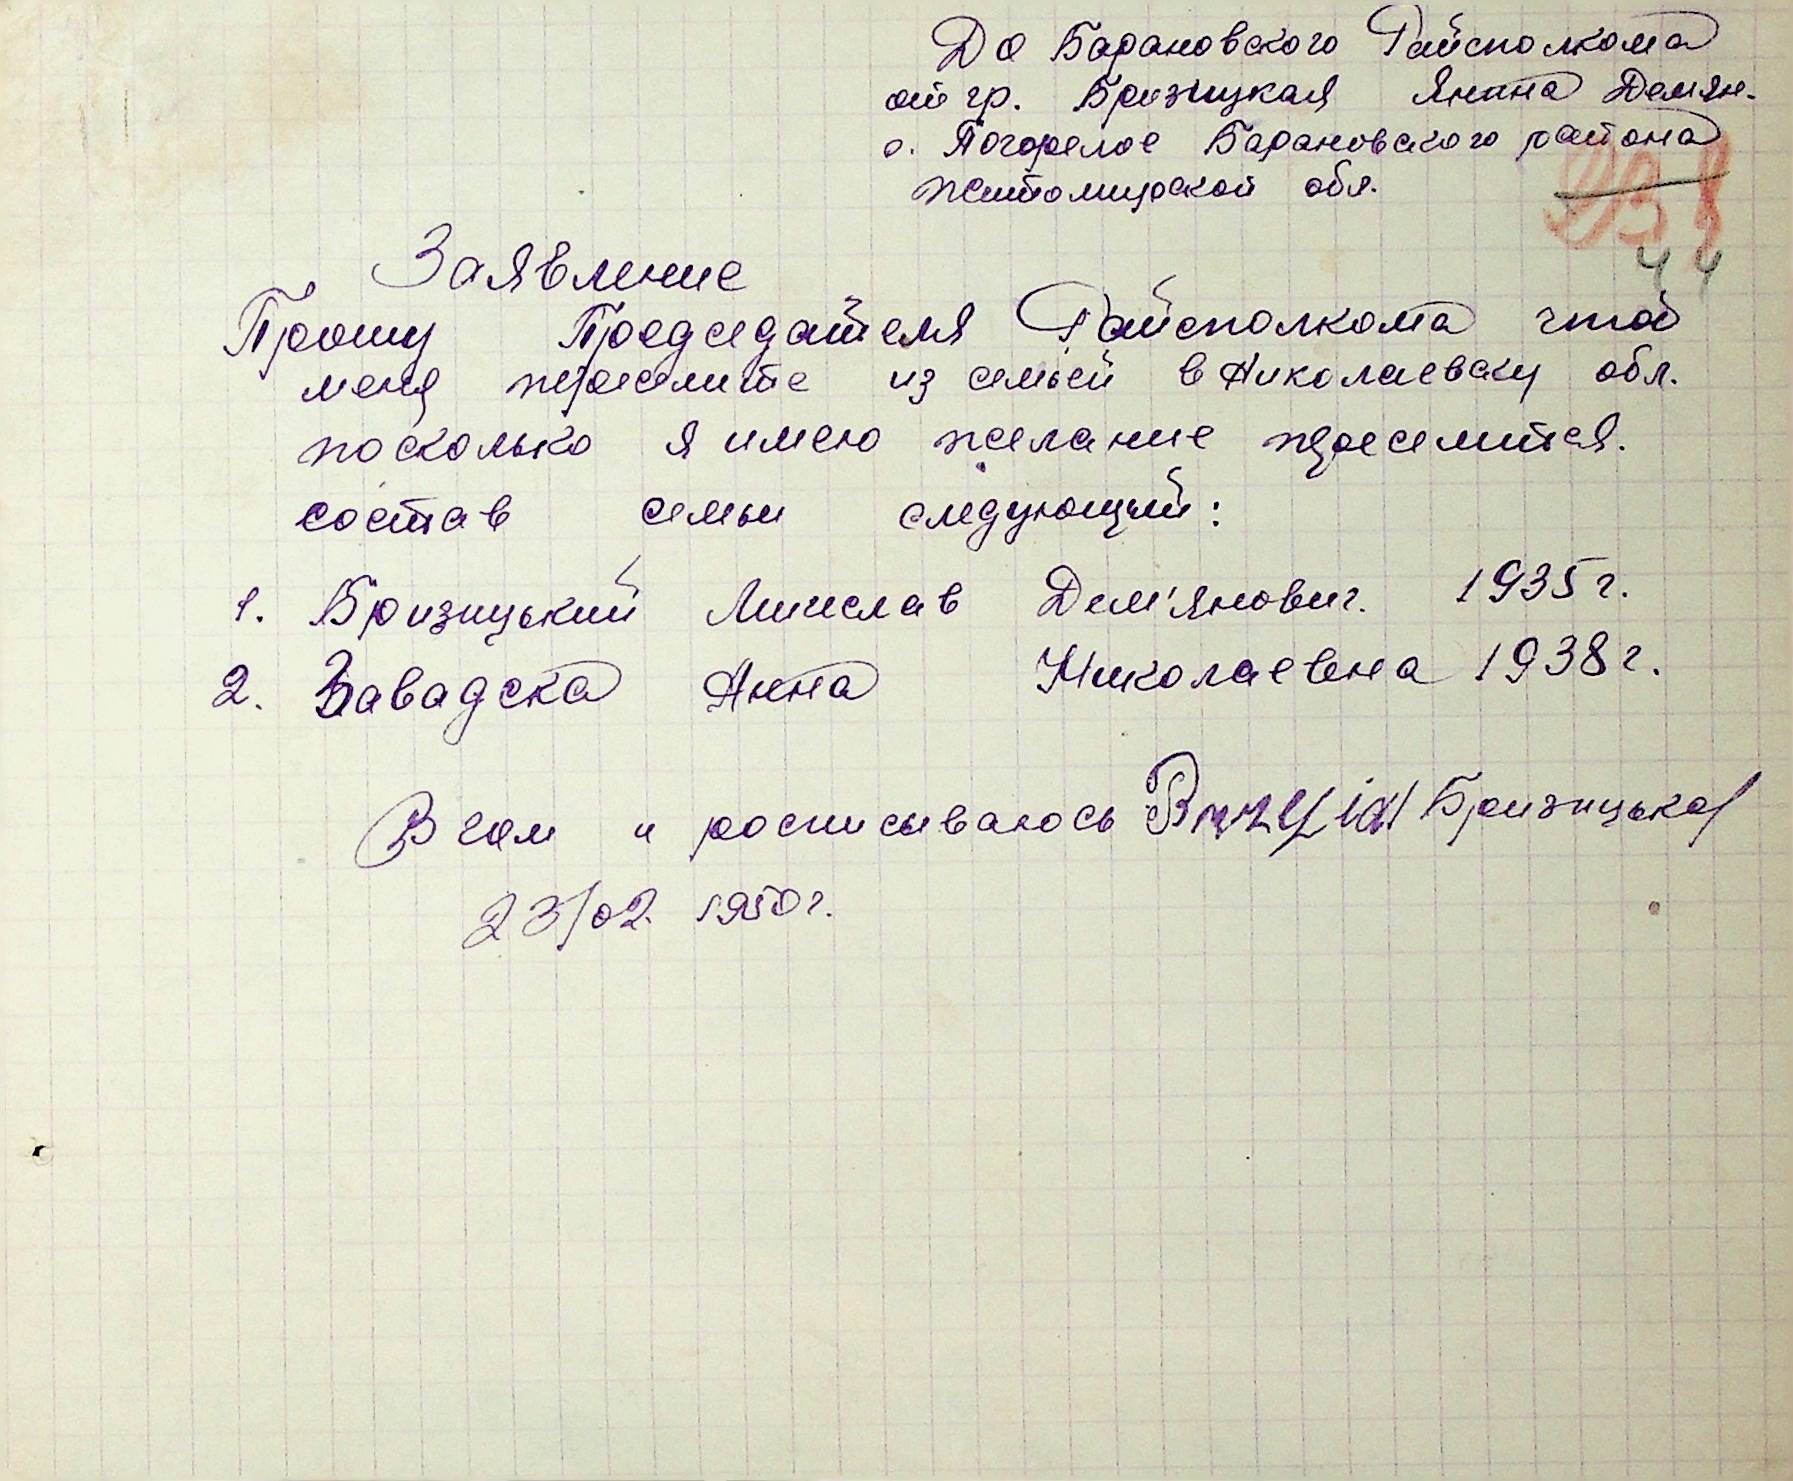 До Барановского Райсполкома
от гр. Бризицкая Янина Демян.
с. Погорелое Барановского района
житомирской обл.
44
Заявление
Прошу Председателя Райсполкома чтоб
меня переселите из семьей в Николаевску обл.
посколько я имею желание преселится.
состав семьи следующий:
1. Бризицький Мичеслав Дем'янович. 1935 г.
2. Завадска Анна Николаевна 1938 г.
В чом и росписываюсь Бризицька
23/02 1950 г.